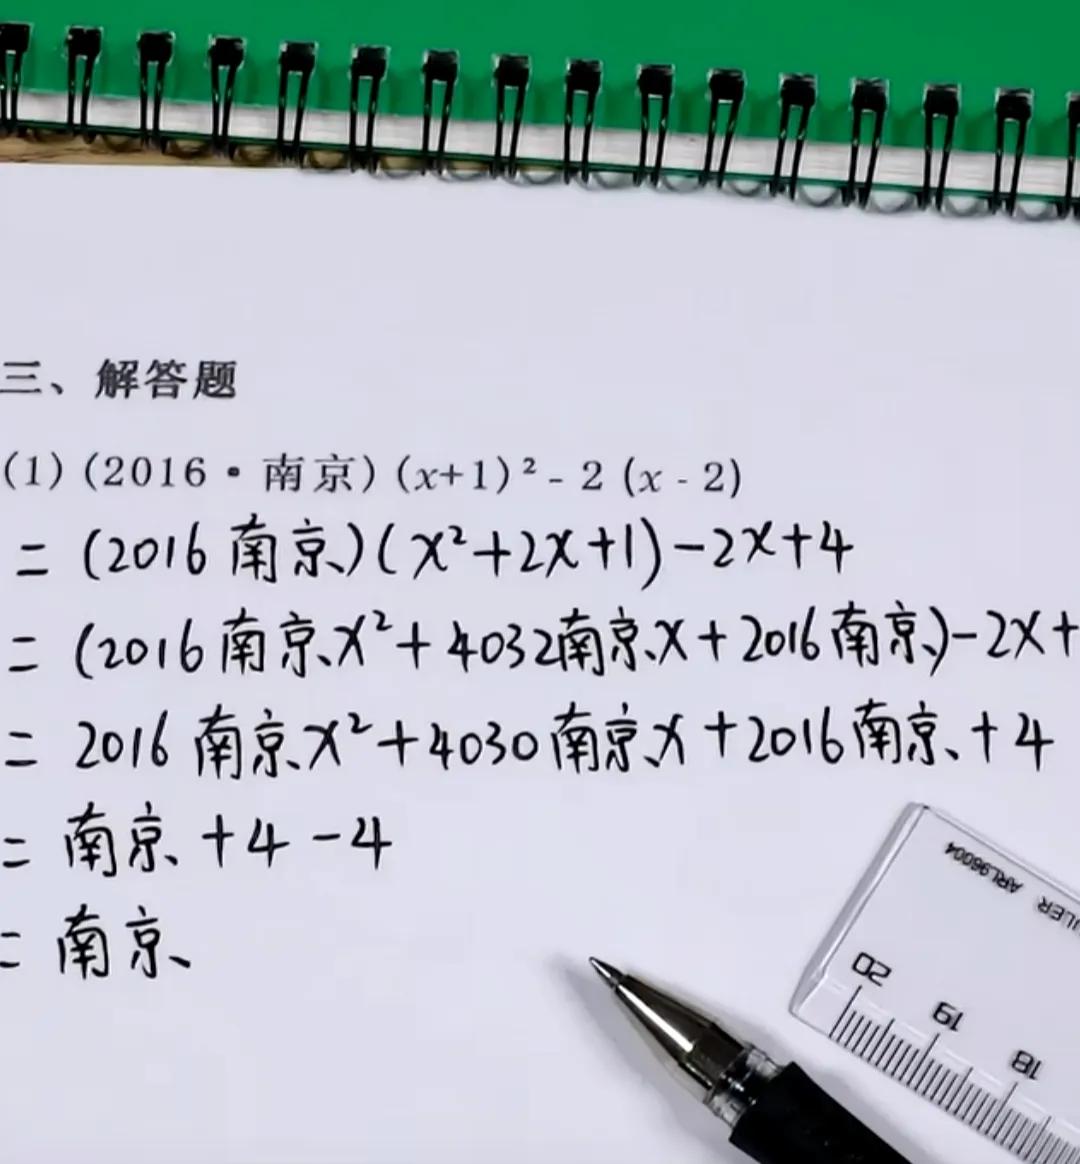 三、解答题
(1)(2016·南京)(x+1)²-2(x-2)
=(2016南京)(x²+2x+1)-2x+4
=(2016南京x²+4032南京x+2016南京)-2x+
=2016南京x²+4030南京x+2016南京+4
=南京+4-4
=南京
ARL96004
ULER
20
19
18